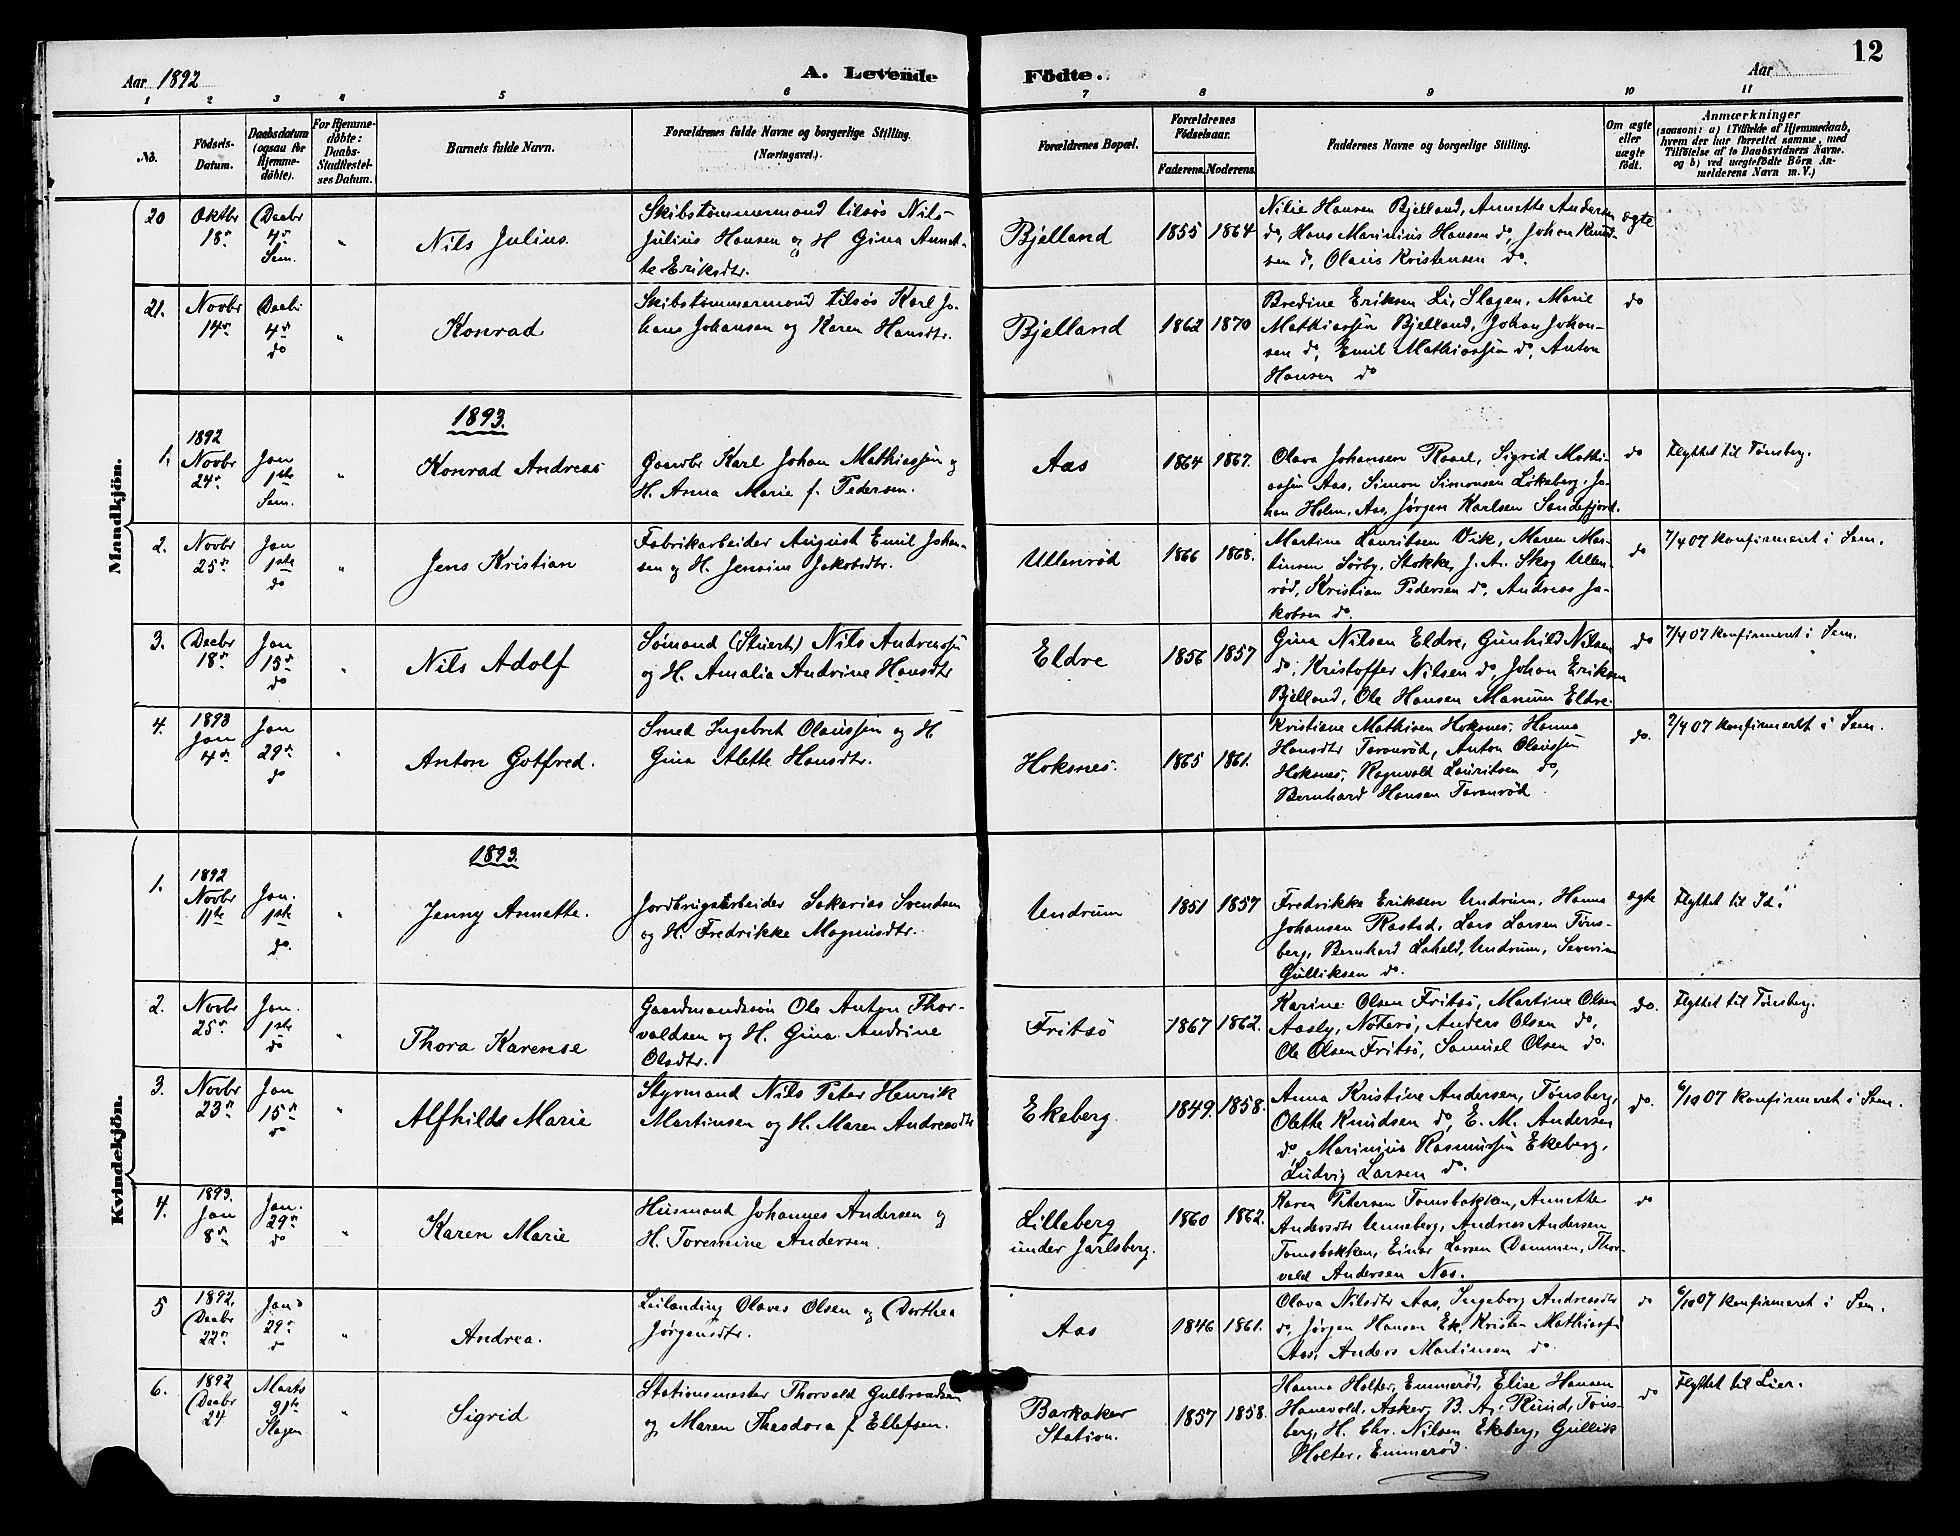 Aar 1892
A. Levende Födte.
Aar
12
1 2 3 4 5 6 7 8 9 10 11
No.
Födsels-
Datum.
Daabsdatum
(ogsaa for
Hjemme-
döbte).
For Hjemme-
döbte:
Daabs-
Stadfæstel-
ses Datum.
Barnets fulde Navn.
Forældrenes fulde Navne og borgerlige Stilling.
(Næringsvei.)
Forældrenes Bopæl.
Forældrenes
Födselsaar.
Faderens. Moderens.
Faddernes Navne og borgerlige Stilling.
Om ægte
eller
uægte
födt.
Anmærkninger
(saasom: a) i Tilfælde af Hjemmedaab,
hvem der har forrettet samme, med
Tilföielse af to Daabsvidners Navne,
og b) ved uægtefödte Börn An-
melderens Navn m. V.)
Mandkjön.
20 Oktbr 18de
Decbr 4de Sem.
"
Nils Julius.
Skibstømmermand tilsøs Nils
Julius Hansen og H. Gina Annet-
te Eriksdtr.
Bjelland
1855 1864
Nilie Hansen Bjelland, Annette Andersen
do, Hans Marinius Hansen do, Johan Knud-
sen do, Olaus Kristensen do.
ægte
21. Novbr 14de
Decbr 4de do
"
Konrad
Skibstømmermand tilsøs Karl Jo-
hans Johansen og Karen Hansdtr.
Bjelland
1862 1870
Bredine Eriksen Li, Slagen, Marie
Mathiassen Bjelland, Johan Johan-
sen do, Emil Mathiassen do, Anton
Hansen do
do
1893.
1. 1892 Novbr 24de
Jan 1ste Sem.
"
Konrad Andreas
Gaardbr Karl Johan Mathiassen og
H. Anna Marie f. Pedersen.
Aas
1864 1867.
Olava Johansen Raael, Sigrid Mathi-
assen Aas, Simon Simonsen Lökeberg, Jo-
han Holm, Aas, Jørgen Karlsen Sandefjord.
do
Flyttet til Tønsberg.
2. Novbr 25de
Jan 1ste do
"
Jens Kristian
Fabrikarbeider August Emil Johan-
sen og H. Jensine Jakobsdtr.
Ullenrød
1866 1868.
Martine Lauritsen Vik, Maren Mar-
tinsen Sörby, Stokke, J. A. Skog Ullen-
röd, Kristian Pedersen do, Andreas Ja-
kobsen do
do
7/4 07 konfirmeret i Sem.
3. Decbr 18de
Jan 15de do
"
Nils Adolf
Sömand (Stuert) Nils Andreassen
og H. Amalia Andrine Hansdtr
Eldre
1856 1857
Gina Nilsen Eldre, Gunhild Nilsen
do, Kristoffer Nilsen do, Johan Eriksen
Bjelland, Ole Hansen Manum Eldre.
do
7/4 07 konfirmeret i Sem.
4. 1893 Jan 4de
Jan 29de do
"
Anton Gotfred.
Smed Ingebret Olaussen og H.
Gina Alette Hansdtr.
Hoksnes.
1865 1861.
Kristiane Mathisen Hoksnes, Hanna
Hansdtr Taranröd, Anton Olaussen
Hoksnes, Ragnvald Lauritsen do,
Bernhard Hansen Taranröd
do.
7/4 07 konfirmeret i Sem.
Kvindekjön.
1893.
1. 1892 Novbr 11te
Jan. 1ste do.
"
Jenny Annette.
Jordbrugsarbeider Sakarias Svendsen
og H. Fredrikke Magnusdtr.
Undrum
1851 1857
Fredrikke Eriksen Undrum, Hanna
Johansen Rastad, Lars Larsen Töns-
berg, Bernhard Laheld, Undrum, Severin
Gulliksen do.
ægte
Flyttet til Id.
2. Novbr 25de
Jan. 1ste do
"
Thora Karense
Gaardmandssön Ole Anton Thor-
valdsen og H. Gina Andrine
Olsdtr.
Fritsö
1867 1862.
Karine Olsen Fritsö, Martine Olsen
Aasly, Nöterö, Anders Olsen do,
Ole Olsen Fritsö, Samuel Olsen do.
do.
Flyttet til Tønsberg.
3. Novbr 23de
Jan 15de do
"
Alfhilda Marie
Styrmand Nils Peter Henrik
Martinsen og H. Maren Andreasdtr
Ekeberg.
1849. 1858.
Anna Kristine Andersen, Tönsberg,
Olette Knudsen do, E. M. Andersen
do, Marinius Rasmussen Ekeberg,
Ludvig Larsen do.
do.
6/10 07 konfirmeret i Sem.
4. 1893. Jan 8de
Jan. 29de do
"
Karen Marie
Husmand Johannes Andersen og
H. Toremine Andersen.
Lilleberg
under Jarlsberg.
1860 1862.
Karen Petersen Tomsbakken, Annette
Andersdtr Unneberg, Andreas Andersen
Tomsbakken, Einar Larsen Dammen, Thor-
vald Andersen Nas.
do
5 1892. Decbr 22de
Jan 29de do
"
Andrea.
Leilænding Olaves Olsen og Dorthea
Jørgensdtr.
Aas
1846 1861.
Olava Nilsdtr Aas, Ingeborg Andreasdtr
do, Jørgen Hansen Ek, Kristen Mathiassen
Aas, Anders Martinsen do.
do
6/10 07 konfirmeret i Sem.
6. 1892 Decbr 24
Marts 31te Slagen
"
Sigrid
Stationsmester Thorvald Gulbrandsen
og Maren Theodora f. Ellefsen.
Barkaker
Station.
1857 1858.
Hanna Holter, Emmeröd, Elise Hansen
Hanevold, Asker, B. A. Ruud, Töns-
berg, H. Chr. Nilsen Ekeberg, Gullik
Holter, Emmeröd.
do
Flyttet til Lier.